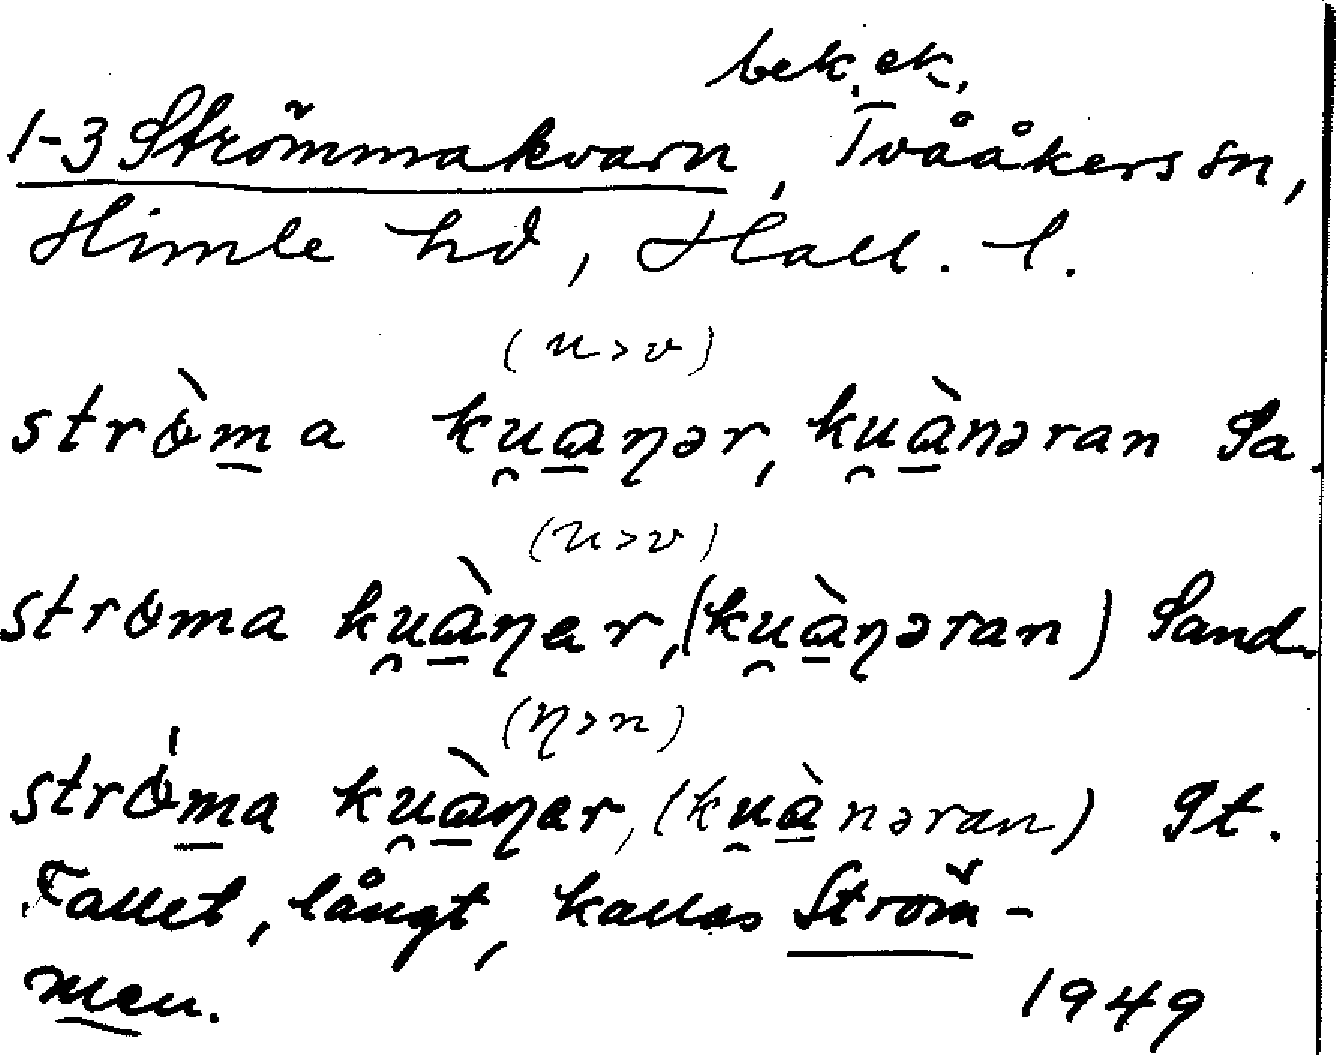 bek. ek.
1-3 Strömmakvarn, Tvååkers sn,
Himle hd, Hall. l.
(u>v)
strò̤m̲a ku̯a̲ŋər, ku̯à̲nəran Sa.
(u>v)
stroma ku̯à̲ŋer, (ku̯à̲ŋəran) Sand.
(ŋ>n)
stróm̲a ku̯à̲ŋer, (ku̯à̲nəran) St.
Fallet, långt, kallas Ström-
men.
1949